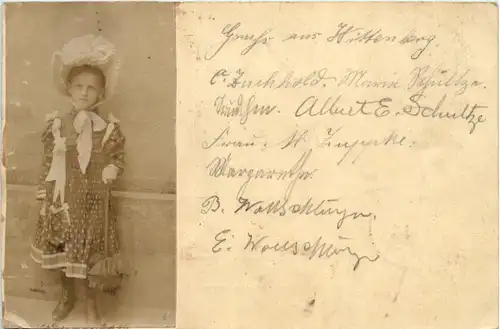 Gruss aus Wittenberg.
Marie Schultze.
Albert E. Schultze
Frau. W. Zuppke.
Margarethe
B. Wollschläger.
E. Wollschläger